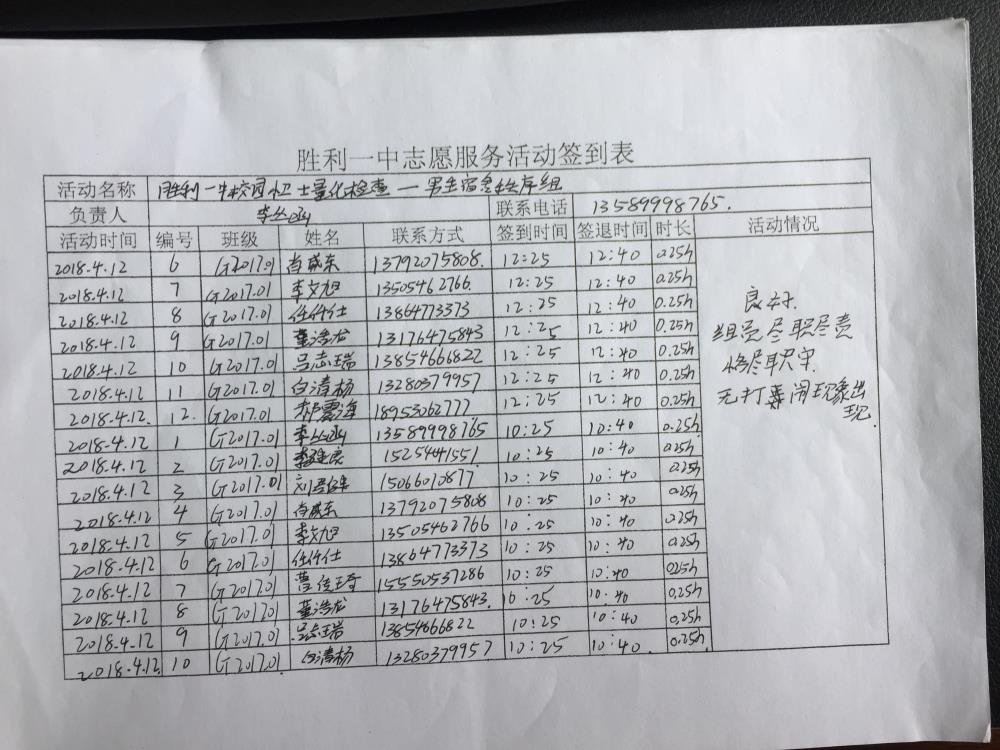 胜利一中志愿服务活动签到表
活动名称 胜利一中校园卫士量化检查—男生宿舍秩序组
负责人 李丛函 联系电话 13589998765.
活动时间 编号 班级 姓名 联系方式 签到时间 签退时间 时长 活动情况
2018.4.12 6 G2017.01 肖威东 13792075808. 12:25 12:40 0.25h
2018.4.12 7 G2017.01 李文旭 13505462766. 12:25 12:40 0.25h
2018.4.12 8 G2017.01 任仟仕 13864773373 12:25 12:40 0.25h
2018.4.12 9 G2017.01 董浩龙 13176475843 12:25 12:40 0.25h
2018.4.12 10 G2017.01 吕志瑞 13854666822 12:25 12:40 0.25h
2018.4.12 11 G2017.01 白清杨 13280379957 12:25 12:40 0.25h
2018.4.12. 12. G2017.01 18953062777 12:25 12:40 0.25h
2018.4.12 1 G2017.01 李丛函 13589998765 10:25 10:40 0.25h
2018.4.12 2 G2017.01 15254441551 10:25 10:40 0.25h
2018.4.12 3 G2017.01 15066010877 10:25 10:40 0.25h
2018.4.12 4 G2017.01 肖威东 13792075808 10:25 10:40 0.25h
2018.4.12 5 G2017.01 李文旭 13505462766 10:25 10:40 0.25h
2018.4.12 6 G2017.01 任仟仕 13864773373 10:25 10:40 0.25h
2018.4.12 7 G2017.01 曹传琦 15550537286 10:25 10:40 0.25h
2018.4.12 8 G2017.01 董浩龙 13176475843. 10:25 10:40 0.25h
2018.4.12 9 G2017.01 吕志瑞 13854666822 10:25 10:40 0.25h
2018.4.12. 10 G2017.01 白清杨 13280379957 10:25 10:40. 0.25h
良好.
组员尽职尽责
恪尽职守.
无打等闹现象出
现.